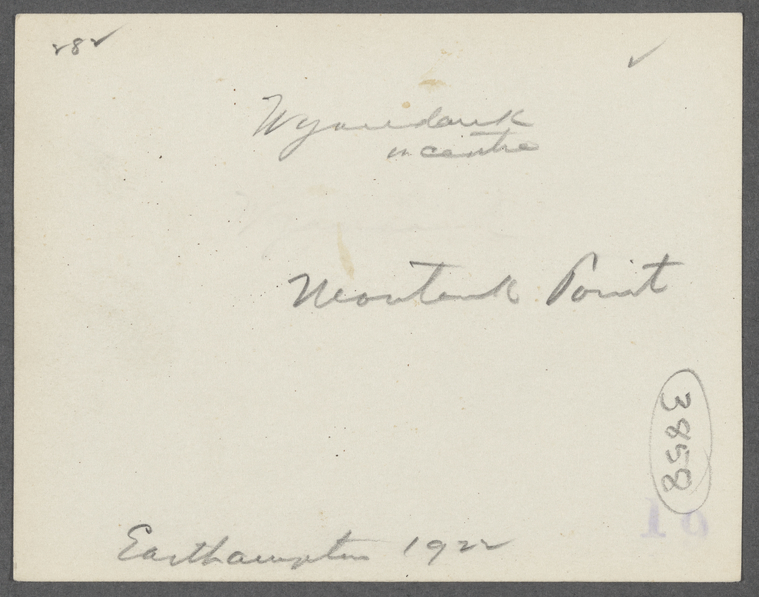 282
Wyandank
in centre
Montauk Point
3858
18
Easthampton 1922